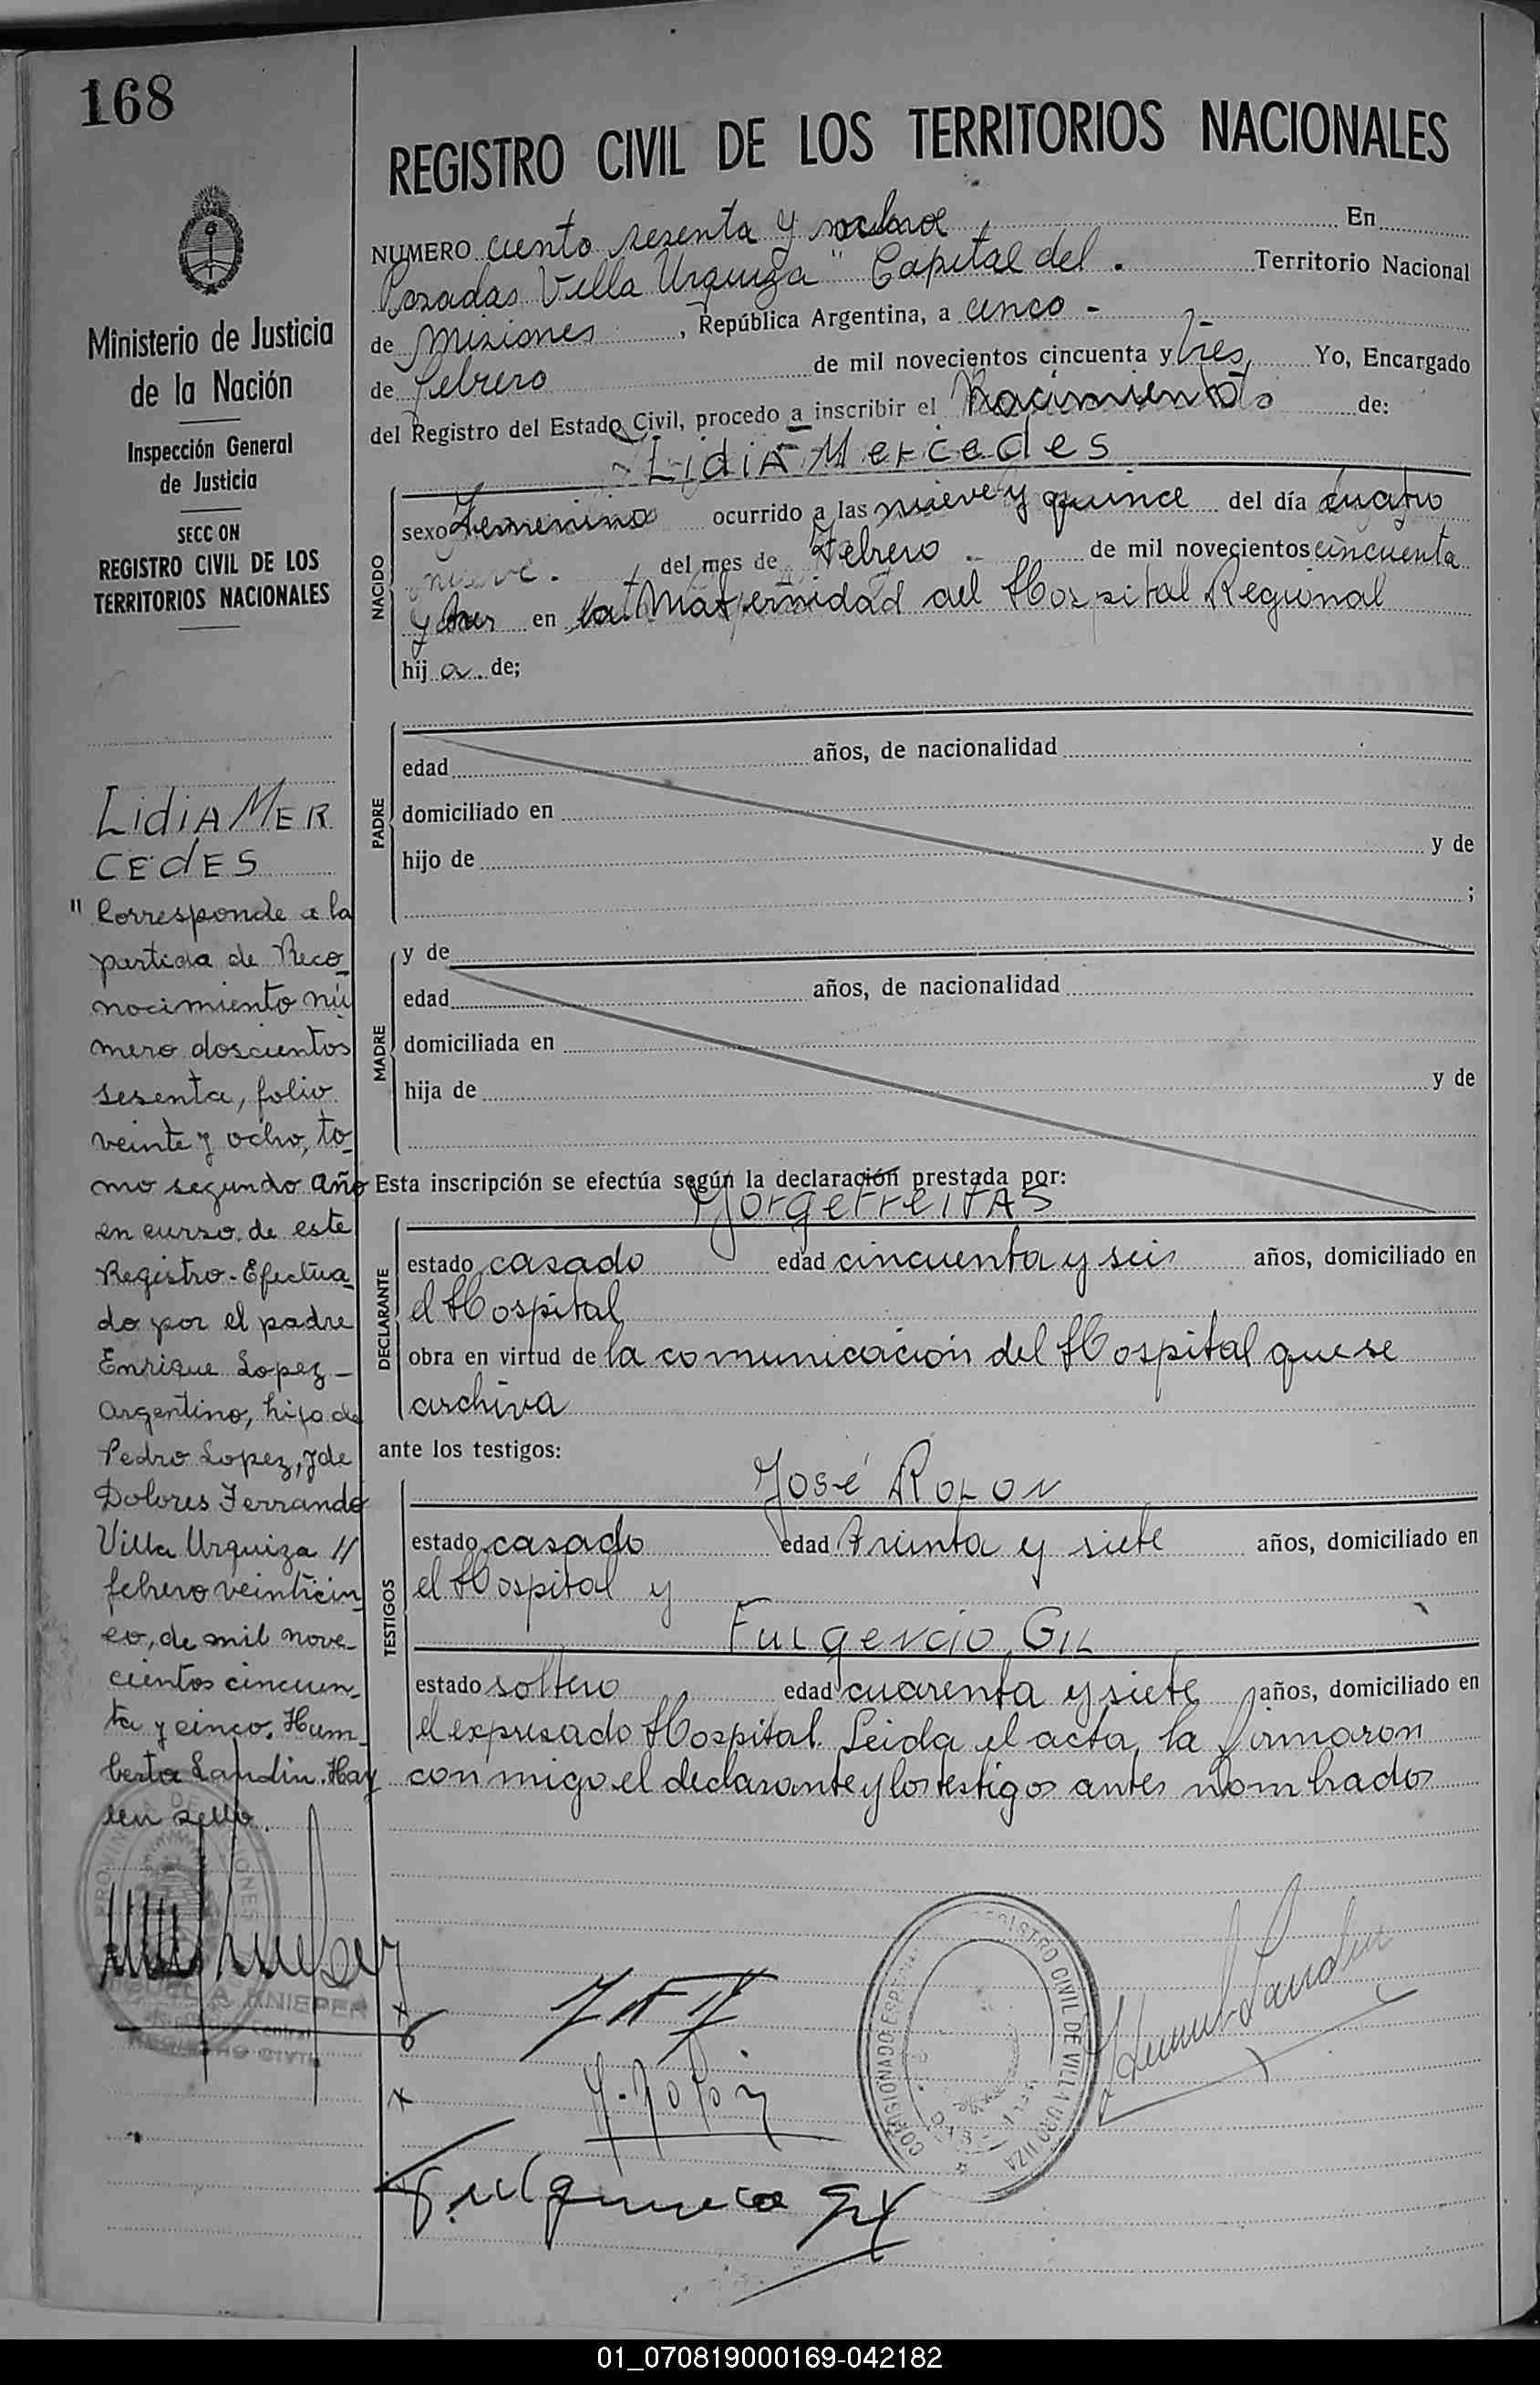 168
REGISTRO CIVIL DE LOS TERRITORIOS NACIONALES
NUMERO ciento sesenta y ocho En
Posadas Villa Urquiza" Capital del . Territorio Nacional
de Misiones , República Argentina, a cinco -
de febrero de mil novecientos cincuenta y tres Yo, Encargado
del Registro del Estado Civil, procedo a inscribir el Nacimiento de:
Lidia Mercedes
NACIDO
sexo Femenino ocurrido a las nueve y quince del día cuatro
nueve. del mes de Febrero - de mil novecientos cincuenta
y tres en la Maternidad del Hospital Regional
hij a. de;
PADRE
edad años, de nacionalidad
domiciliado en
hijo de y de
;
MADRE
y de
edad años, de nacionalidad
domiciliada en
hija de y de
Esta inscripción se efectúa según la declaración prestada por:
Jorge Freitas
DECLARANTE
estado casado edad cincuenta y seis años, domiciliado en
el Hospital
obra en virtud de la comunicación del Hospital que se
archiva
ante los testigos:
José Rolon
TESTIGOS
estado casado edad treinta y siete años, domiciliado en
el Hospital y
Fulgencio Gil
estado soltero edad cuarenta y siete años, domiciliado en
el expresado Hospital. Leida el acta, la firmaron
conmigo el declarante y los testigos antes nombrados
Ministerio de Justicia
de la Nación
Inspección General
de Justicia
SECC ON
REGISTRO CIVIL DE LOS
TERRITORIOS NACIONALES
Lidia Mer
cedes
" Corresponde a la
partida de Reco-
nocimiento nú
mero doscientos
sesenta, folio
veinte y ocho, to-
mo segundo año
en curso de este
Registro - Efectua-
do por el padre
Enrique Lopez -
Argentino, hijo de
Pedro Lopez, y de
Dolores Ferrando
Villa Urquiza //
febrero veinticin-
co, de mil nove-
cientos cincuen-
ta y cinco. Hum-
berto Landin. Hay
un sello.
PROVINCIA DE MISIONES
KNIEPER
REGISTRO CIVIL
J. Rolón
Fulgencio Gil
REGISTRO CIVIL DE VILLA URQUIZA
Humb Landin
01_070819000169-042182